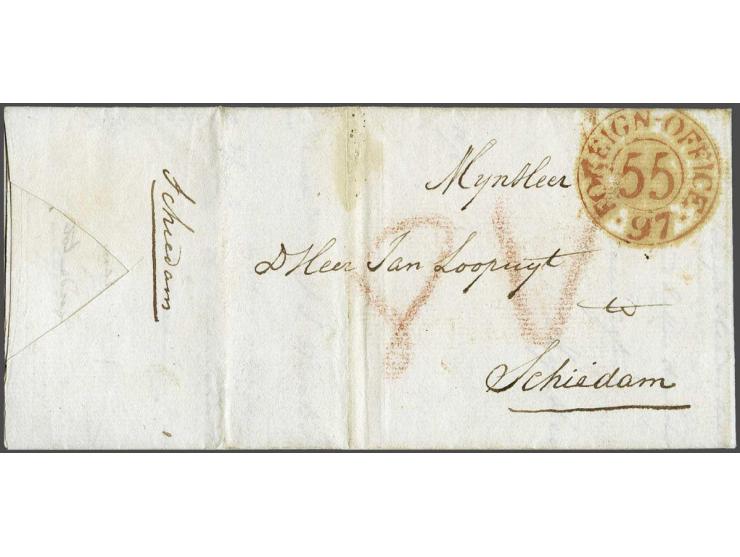 Schiedam
FOREIGN-OFFICE
55
97
MynHeer
D Heer Jan Loopuyt
Schiedam